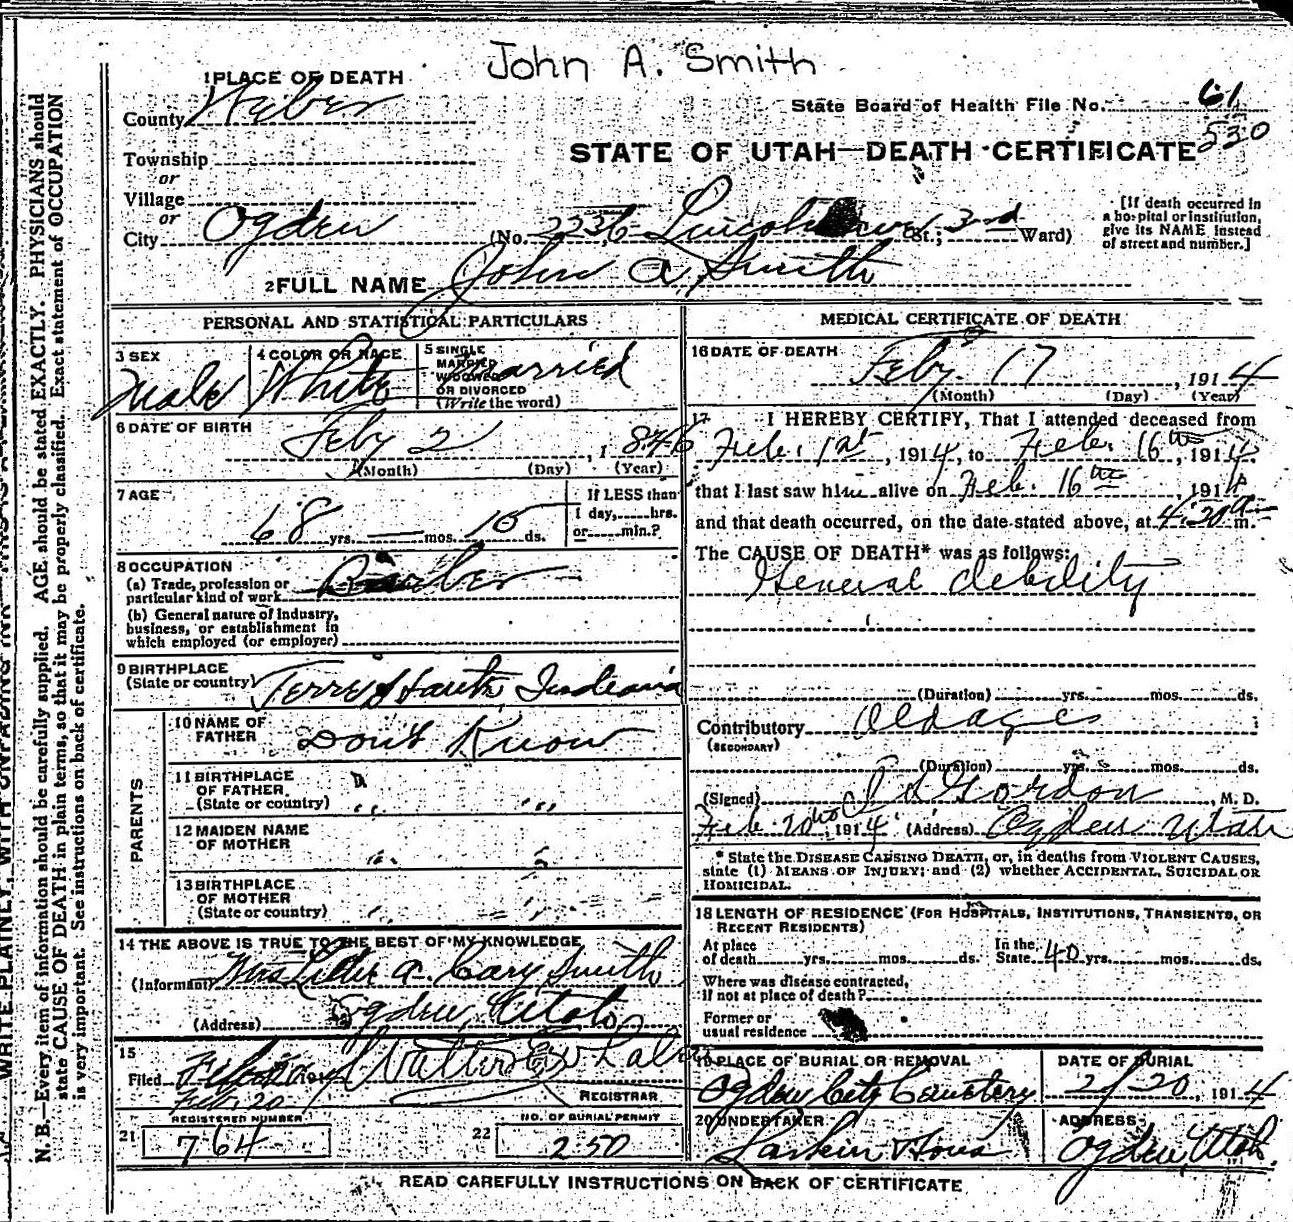 John A. Smith
1 PLACE OF DEATH
County Weber
State Board of Health File No. 61
530
STATE OF UTAH—DEATH CERTIFICATE
Township
or
Village
or
City Ogden (No. 2236 Lincoln ave St.; 3rd Ward)
[If death occurred in a hospital or institution, give its NAME instead of street and number.]
2 FULL NAME John A Smith
PERSONAL AND STATISTICAL PARTICULARS
3 SEX Male
4 COLOR OR RACE White
5 SINGLE MARRIED WIDOWED OR DIVORCED (Write the word) Married
6 DATE OF BIRTH
Feby 2, 1846
(Month) (Day) (Year)
7 AGE
68 yrs. — mos. 15 ds.
If LESS than 1 day, hrs. or min.?
8 OCCUPATION
(a) Trade, profession or particular kind of work Barber
(b) General nature of industry, business, or establishment in which employed (or employer)
9 BIRTHPLACE
(State or country) Terre Haute Indiana
PARENTS
10 NAME OF FATHER Don't Know
11 BIRTHPLACE OF FATHER (State or country) " "
12 MAIDEN NAME OF MOTHER " "
13 BIRTHPLACE OF MOTHER (State or country) " "
14 THE ABOVE IS TRUE TO THE BEST OF MY KNOWLEDGE
(Informant) Mrs A. Cary Smith
(Address) Ogden, Utah
15
Filed 191
Feb. 20
Walter E Whalen
REGISTRAR
REGISTERED NUMBER
21 764
NO. OF BURIAL PERMIT
22 250
MEDICAL CERTIFICATE OF DEATH
16 DATE OF DEATH
Feby 17, 1914
(Month) (Day) (Year)
17 I HEREBY CERTIFY, That I attended deceased from
Feb. 1st, 1914, to Feb. 16th, 1914,
that I last saw him alive on Feb. 16th, 1914
and that death occurred, on the date stated above, at 4:20 a m.
The CAUSE OF DEATH* was as follows:
General debility
(Duration) yrs. mos. ds.
Contributory Old age
(SECONDARY)
(Duration) yrs. mos. ds.
(Signed) Gordon, M. D.
Feb. 20, 1914 (Address) Ogden Utah
* State the DISEASE CAUSING DEATH, or, in deaths from VIOLENT CAUSES,
state (1) MEANS OF INJURY; and (2) whether ACCIDENTAL, SUICIDAL OR
HOMICIDAL.
18 LENGTH OF RESIDENCE (FOR HOSPITALS, INSTITUTIONS, TRANSIENTS, OR
RECENT RESIDENTS)
At place of death yrs. mos. ds. In the State 40 yrs. mos. ds.
Where was disease contracted,
if not at place of death?
Former or
usual residence
19 PLACE OF BURIAL OR REMOVAL
Ogden City Cemetery
DATE OF BURIAL
2/20, 1914
20 UNDERTAKER
Larkin & Sons
ADDRESS
Ogden, Utah.
READ CAREFULLY INSTRUCTIONS ON BACK OF CERTIFICATE
N. B.—Every item of information should be carefully supplied. AGE should be stated EXACTLY. PHYSICIANS should
state CAUSE OF DEATH in plain terms, so that it may be properly classified. Exact statement of OCCUPATION
is very important. See instructions on back of certificate.
WRITE PLAINLY, WITH UNFADING INK